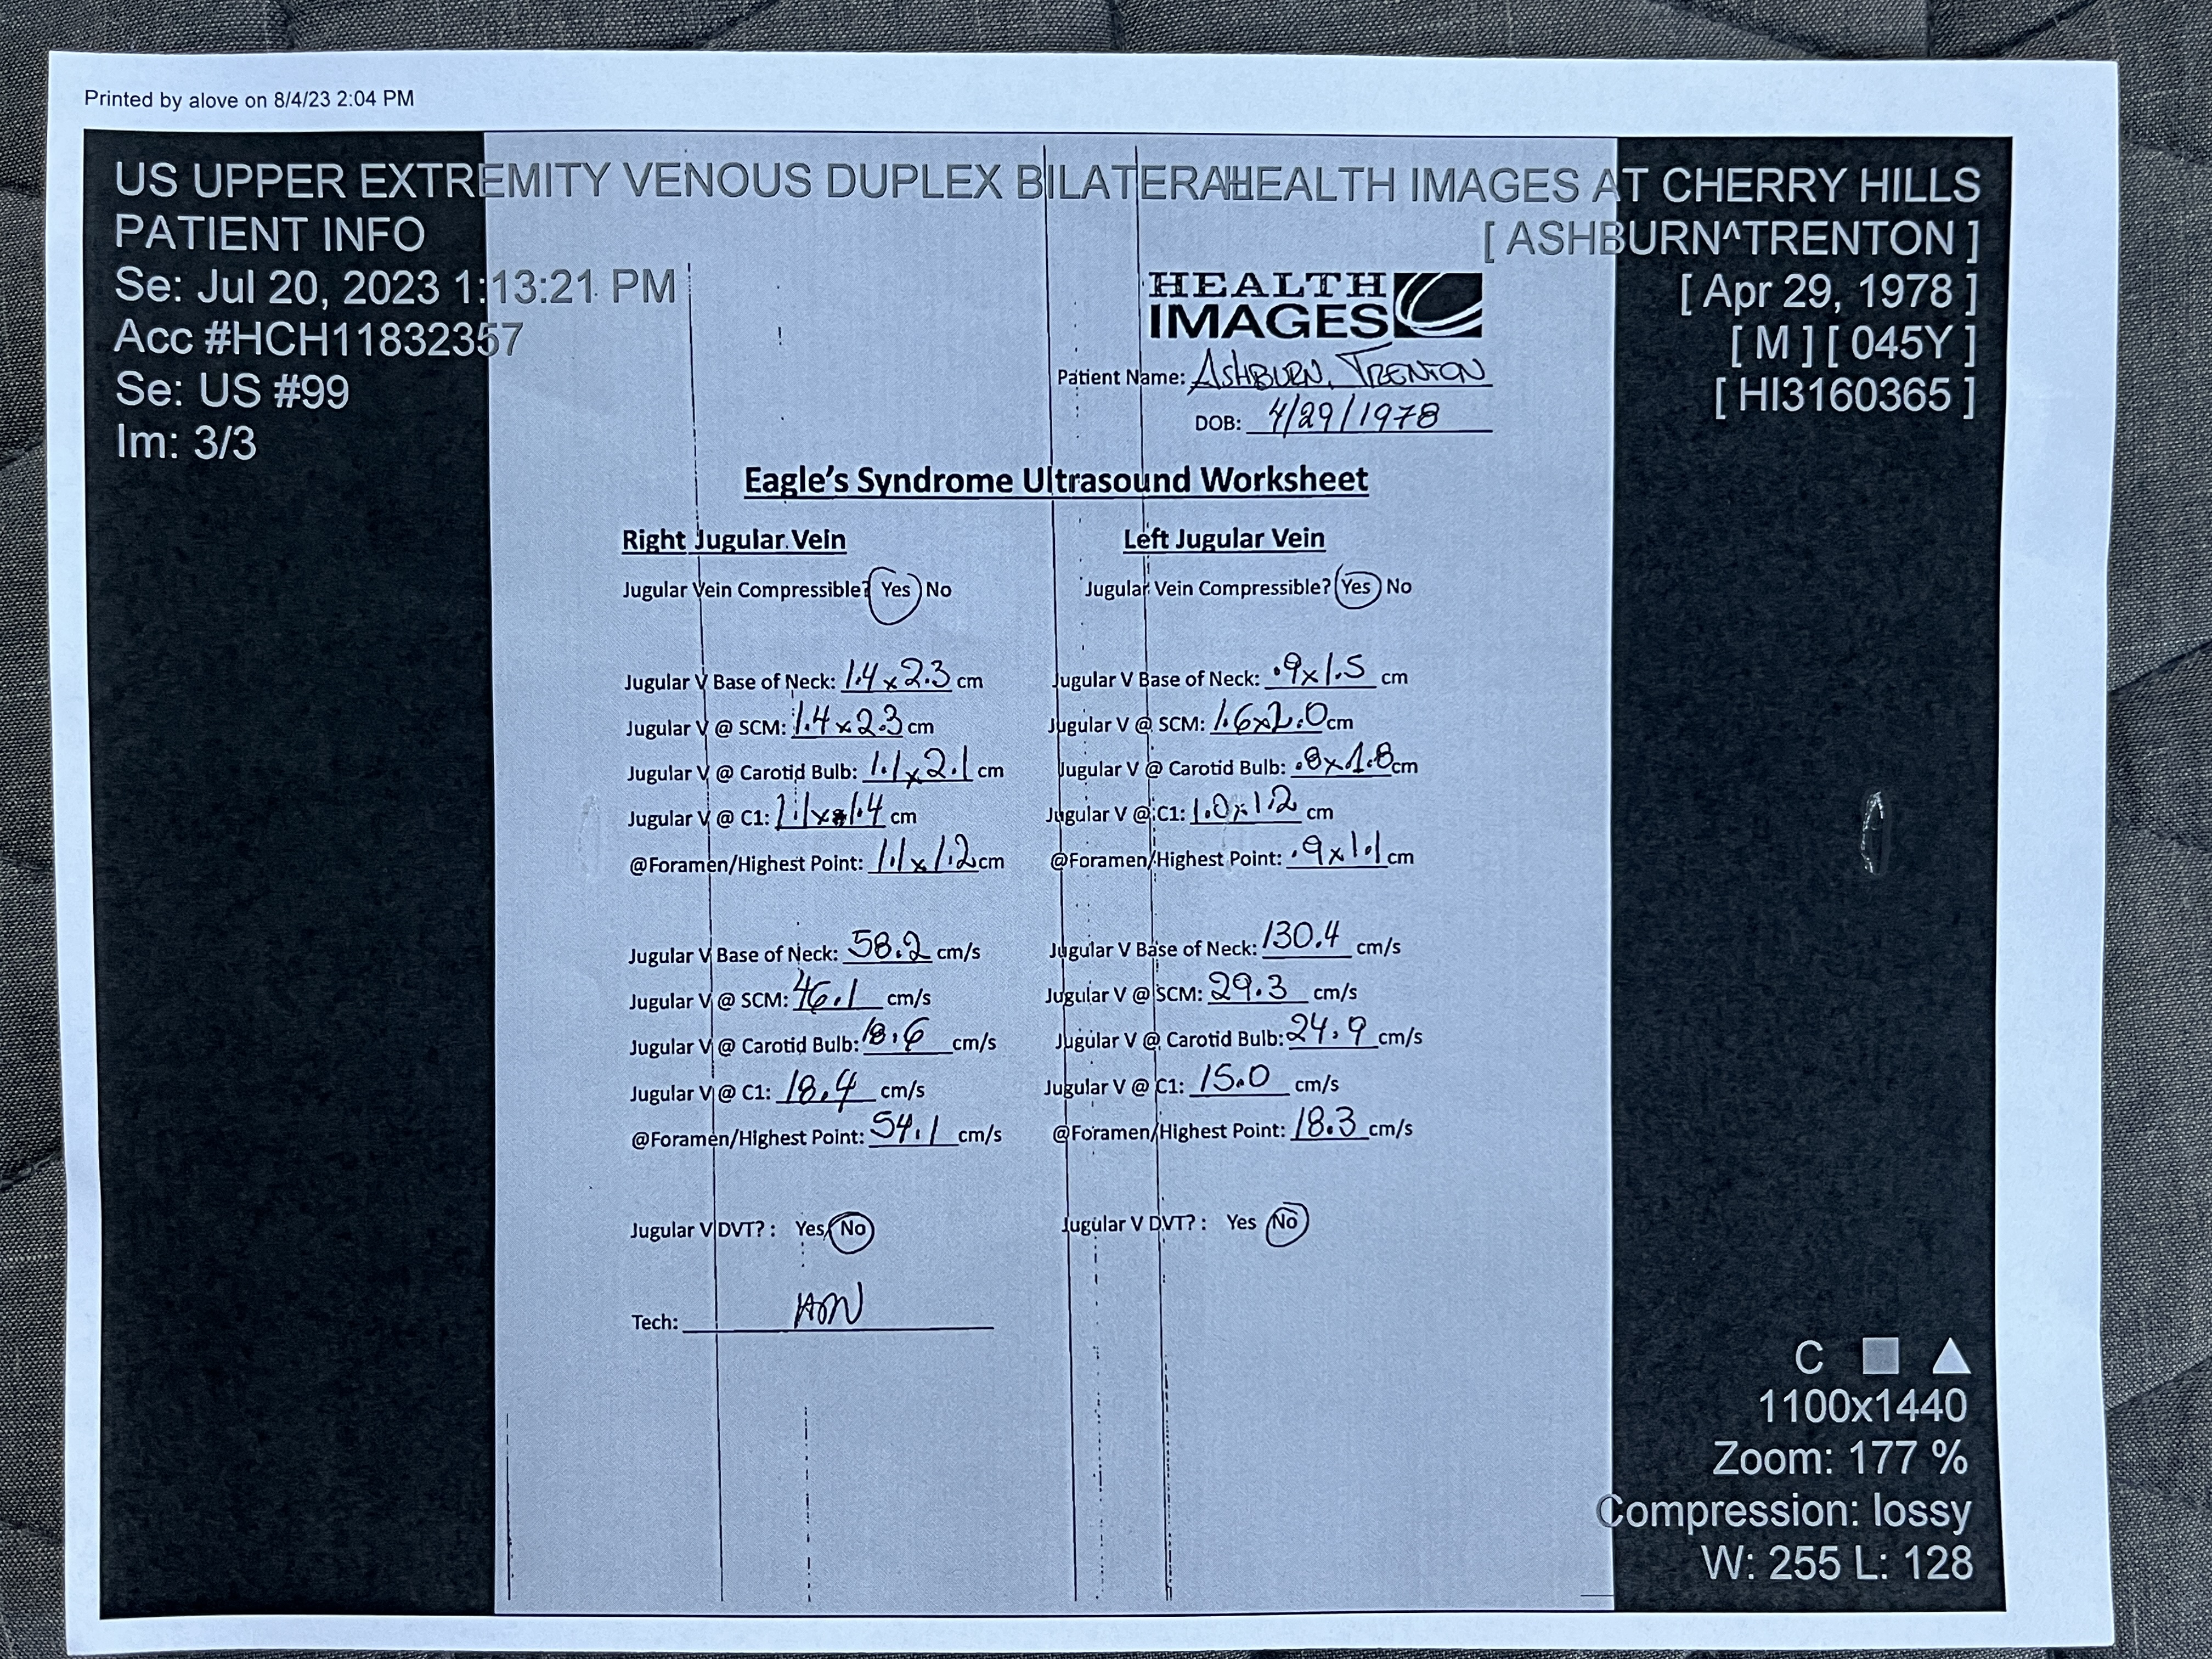 Printed by alove on 8/4/23 2:04 PM
US UPPER EXTREMITY VENOUS DUPLEX BILATERAL
HEALTH IMAGES AT CHERRY HILLS
PATIENT INFO
[ ASHBURN^TRENTON ]
Se: Jul 20, 2023 1:13:21 PM
[ Apr 29, 1978 ]
Acc #HCH11832357
[ M ] [ 045Y ]
Se: US #99
[ HI3160365 ]
Im: 3/3
HEALTH
IMAGES
Patient Name: ASHBURN, TRENTON
DOB: 4/29/1978
Eagle's Syndrome Ultrasound Worksheet
Right Jugular Vein
Jugular Vein Compressible? Yes No
Jugular V Base of Neck: 1.4 x 2.3 cm
Jugular V @ SCM: 1.4 x 2.3 cm
Jugular V @ Carotid Bulb: 1.1 x 2.1 cm
Jugular V @ C1: 1.1 x 1.4 cm
@Foramen/Highest Point: 1.1 x 1.2 cm
Jugular V Base of Neck: 58.2 cm/s
Jugular V @ SCM: 46.1 cm/s
Jugular V @ Carotid Bulb: 18.6 cm/s
Jugular V @ C1: 18.4 cm/s
@Foramen/Highest Point: 54.1 cm/s
Jugular V DVT? : Yes No
Tech:
Left Jugular Vein
Jugular Vein Compressible? Yes No
Jugular V Base of Neck: .9 x 1.5 cm
Jugular V @ SCM: 1.6 x 2.0 cm
Jugular V @ Carotid Bulb: .8 x 1.8 cm
Jugular V @ C1: 1.0 x 1.2 cm
@Foramen/Highest Point: .9 x 1.1 cm
Jugular V Base of Neck: 130.4 cm/s
Jugular V @ SCM: 29.3 cm/s
Jugular V @ Carotid Bulb: 24.9 cm/s
Jugular V @ C1: 15.0 cm/s
@Foramen/Highest Point: 18.3 cm/s
Jugular V DVT? : Yes No
C
1100x1440
Zoom: 177 %
Compression: lossy
W: 255 L: 128